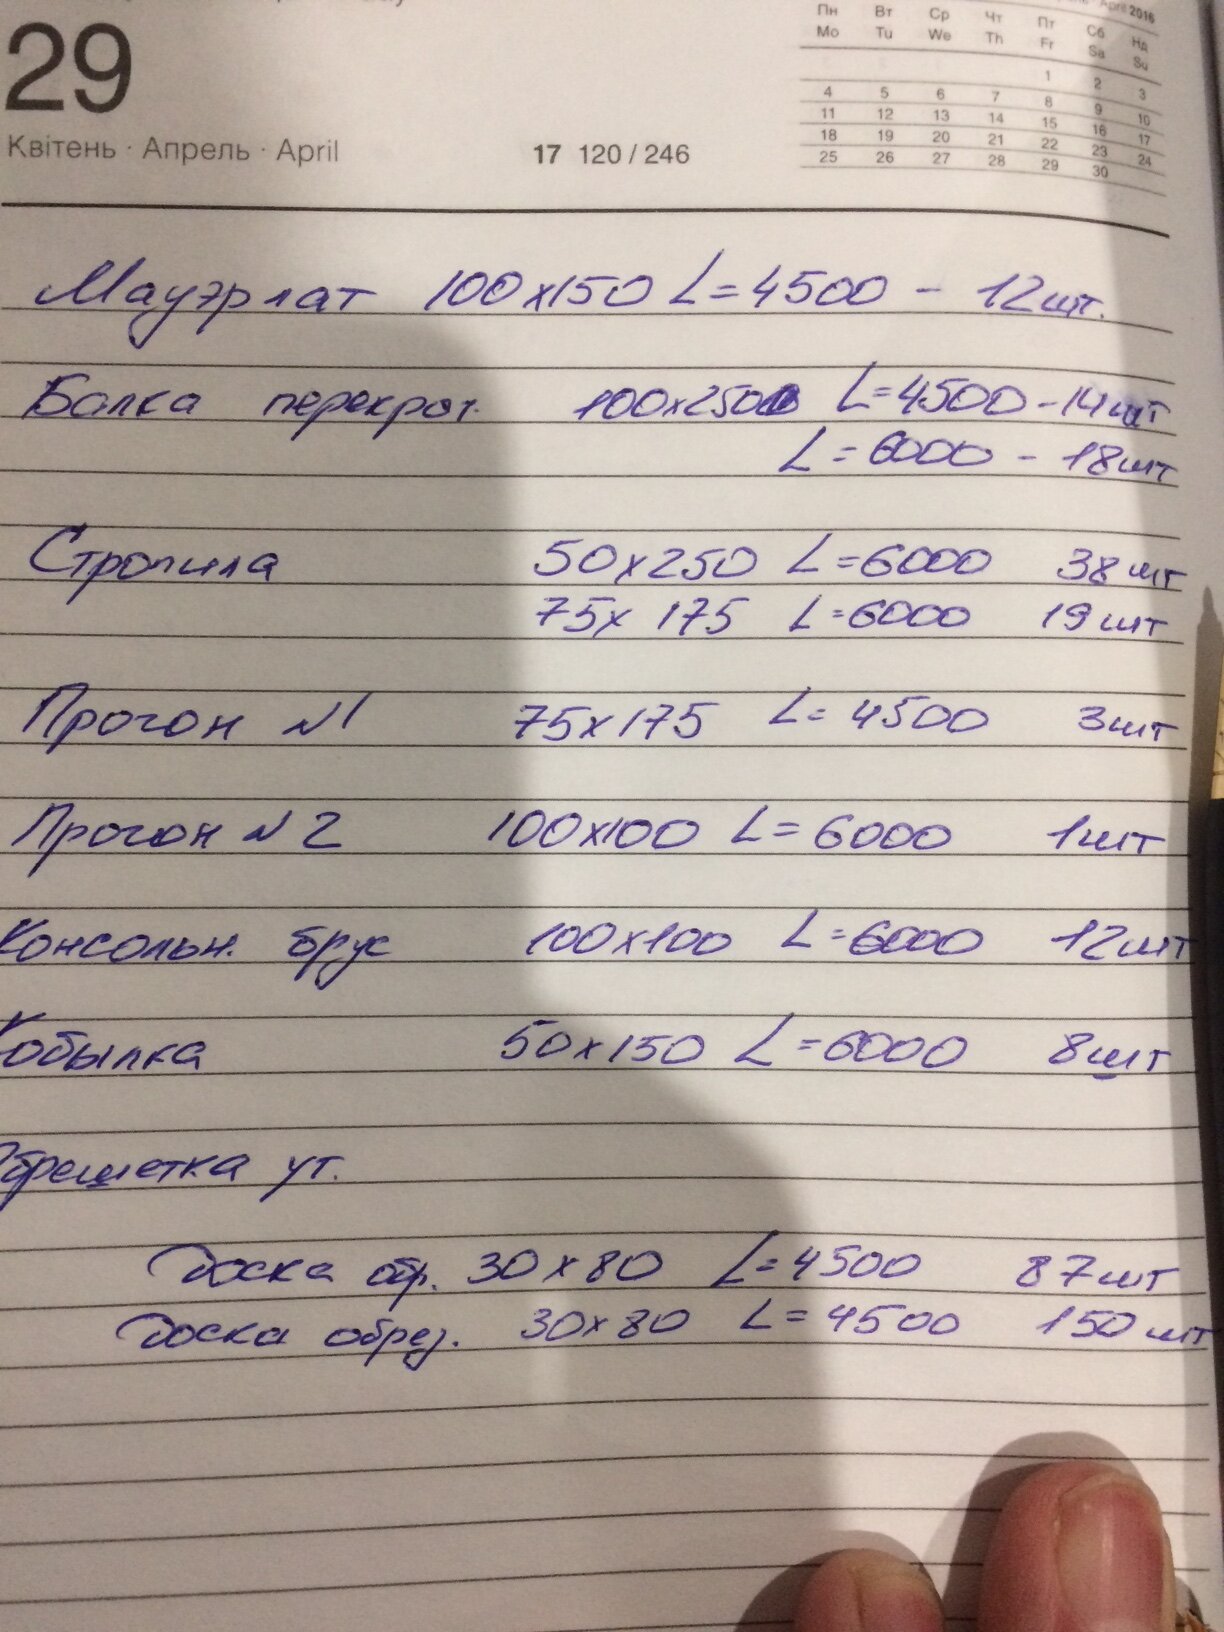 29
Квітень · Апрель · April
17 120 / 246
April 2016
Пн Вт Ср Чт Пт Сб Нд
Mo Tu We Th Fr Sa Su
1 2 3
4 5 6 7 8 9 10
11 12 13 14 15 16 17
18 19 20 21 22 23 24
25 26 27 28 29 30
Мауэрлат 100х150 L=4500 - 12шт.
Балка перекрыт. 100х250 L=4500 - 14шт
L=6000 - 18шт
Стропила 50х250 L=6000 38шт
75х175 L=6000 19шт
Прогон №1 75х175 L=4500 3шт
Прогон №2 100х100 L=6000 1шт
Консольн. брус 100х100 L=6000 12шт
Кобылка 50х150 L=6000 8шт
Обрешетка ут.
Доска обр. 30х80 L=4500 87шт
Доска обрез. 30х80 L=4500 150шт